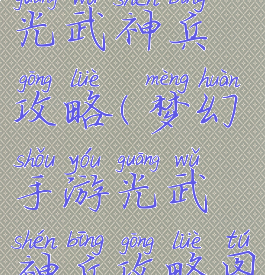 guāng wǔ shén bīng
光武神兵
gōng lüè mèng huàn
攻略(梦幻
shǒu yóu guāng wǔ
手游光武
shén bīng gōng lüè tú
神兵攻略图